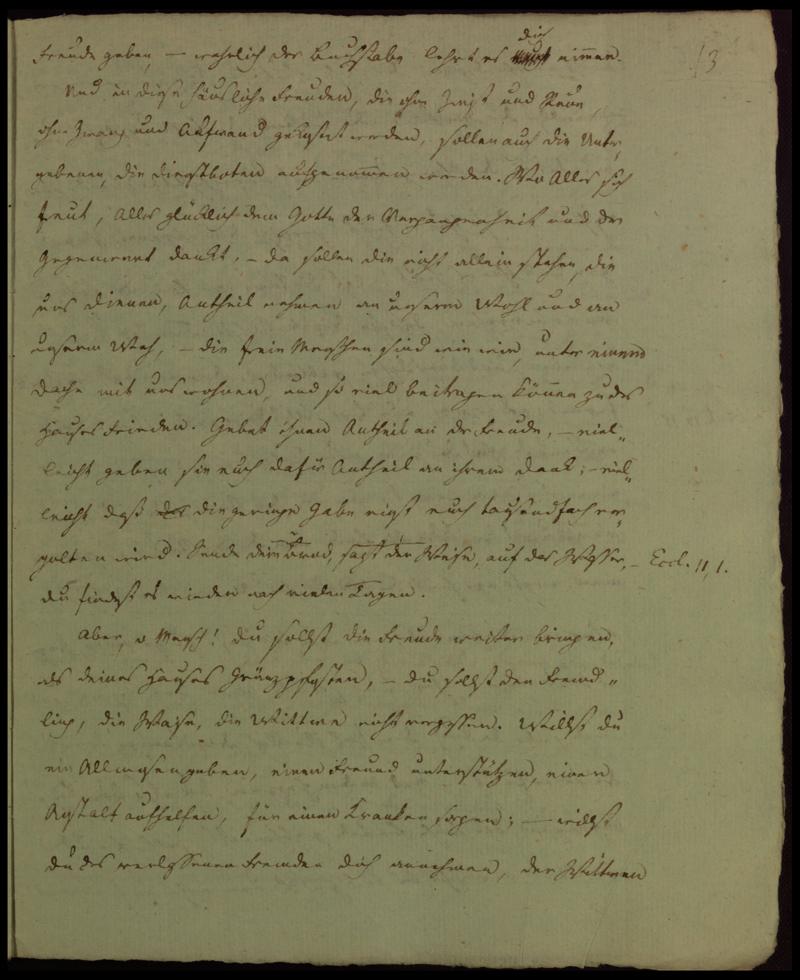 13
Freude geben, — wahrlich der Buchstabe lehrt es dich nimmer.
Und in diese häusliche Freuden, die ohne Zwist und Reue,
ohne Zwang und Aufwand gekostet werden, sollen auch die Unter-
gebenen, die Dienstboten aufgenommen werden. Wo Alles sich
freut, Alles glücklich dem Gotte der Vergangenheit und der
Gegenwart dankt, — da sollen die nicht allein stehen, die
uns dienen, Antheil nehmen an unserm Wohl und an
unserm Weh, — die freie Menschen sind wie wir, unter einem
Dache mit uns wohnen, und so viel beitragen können zu des
Hauses Frieden. Gebet ihnen Antheil an der Freude, — viel-
leicht geben sie euch dafür Antheil an ihrem Dank; — viel-
leicht daß die geringe Gabe einst euch tausendfach ver-
golten wird. Sende dein Brod, sagt der Weise, auf das Wasser, — Eccl. 11,1.
du findest es wieder nach vielen Tagen.
Aber, o Mensch! du sollst die Freude weiter bringen,
als deines Hauses Gränzpfosten, — du sollst den Fremd-
ling, die Waise, die Wittwe nicht vergessen. Willst du
ein Allmosen geben, einen Freund unterstützen, einer
Anstalt aufhelfen, für einen Kranken sorgen; — willst
du des verlassenen Fremden dich annehmen, der Wittwen